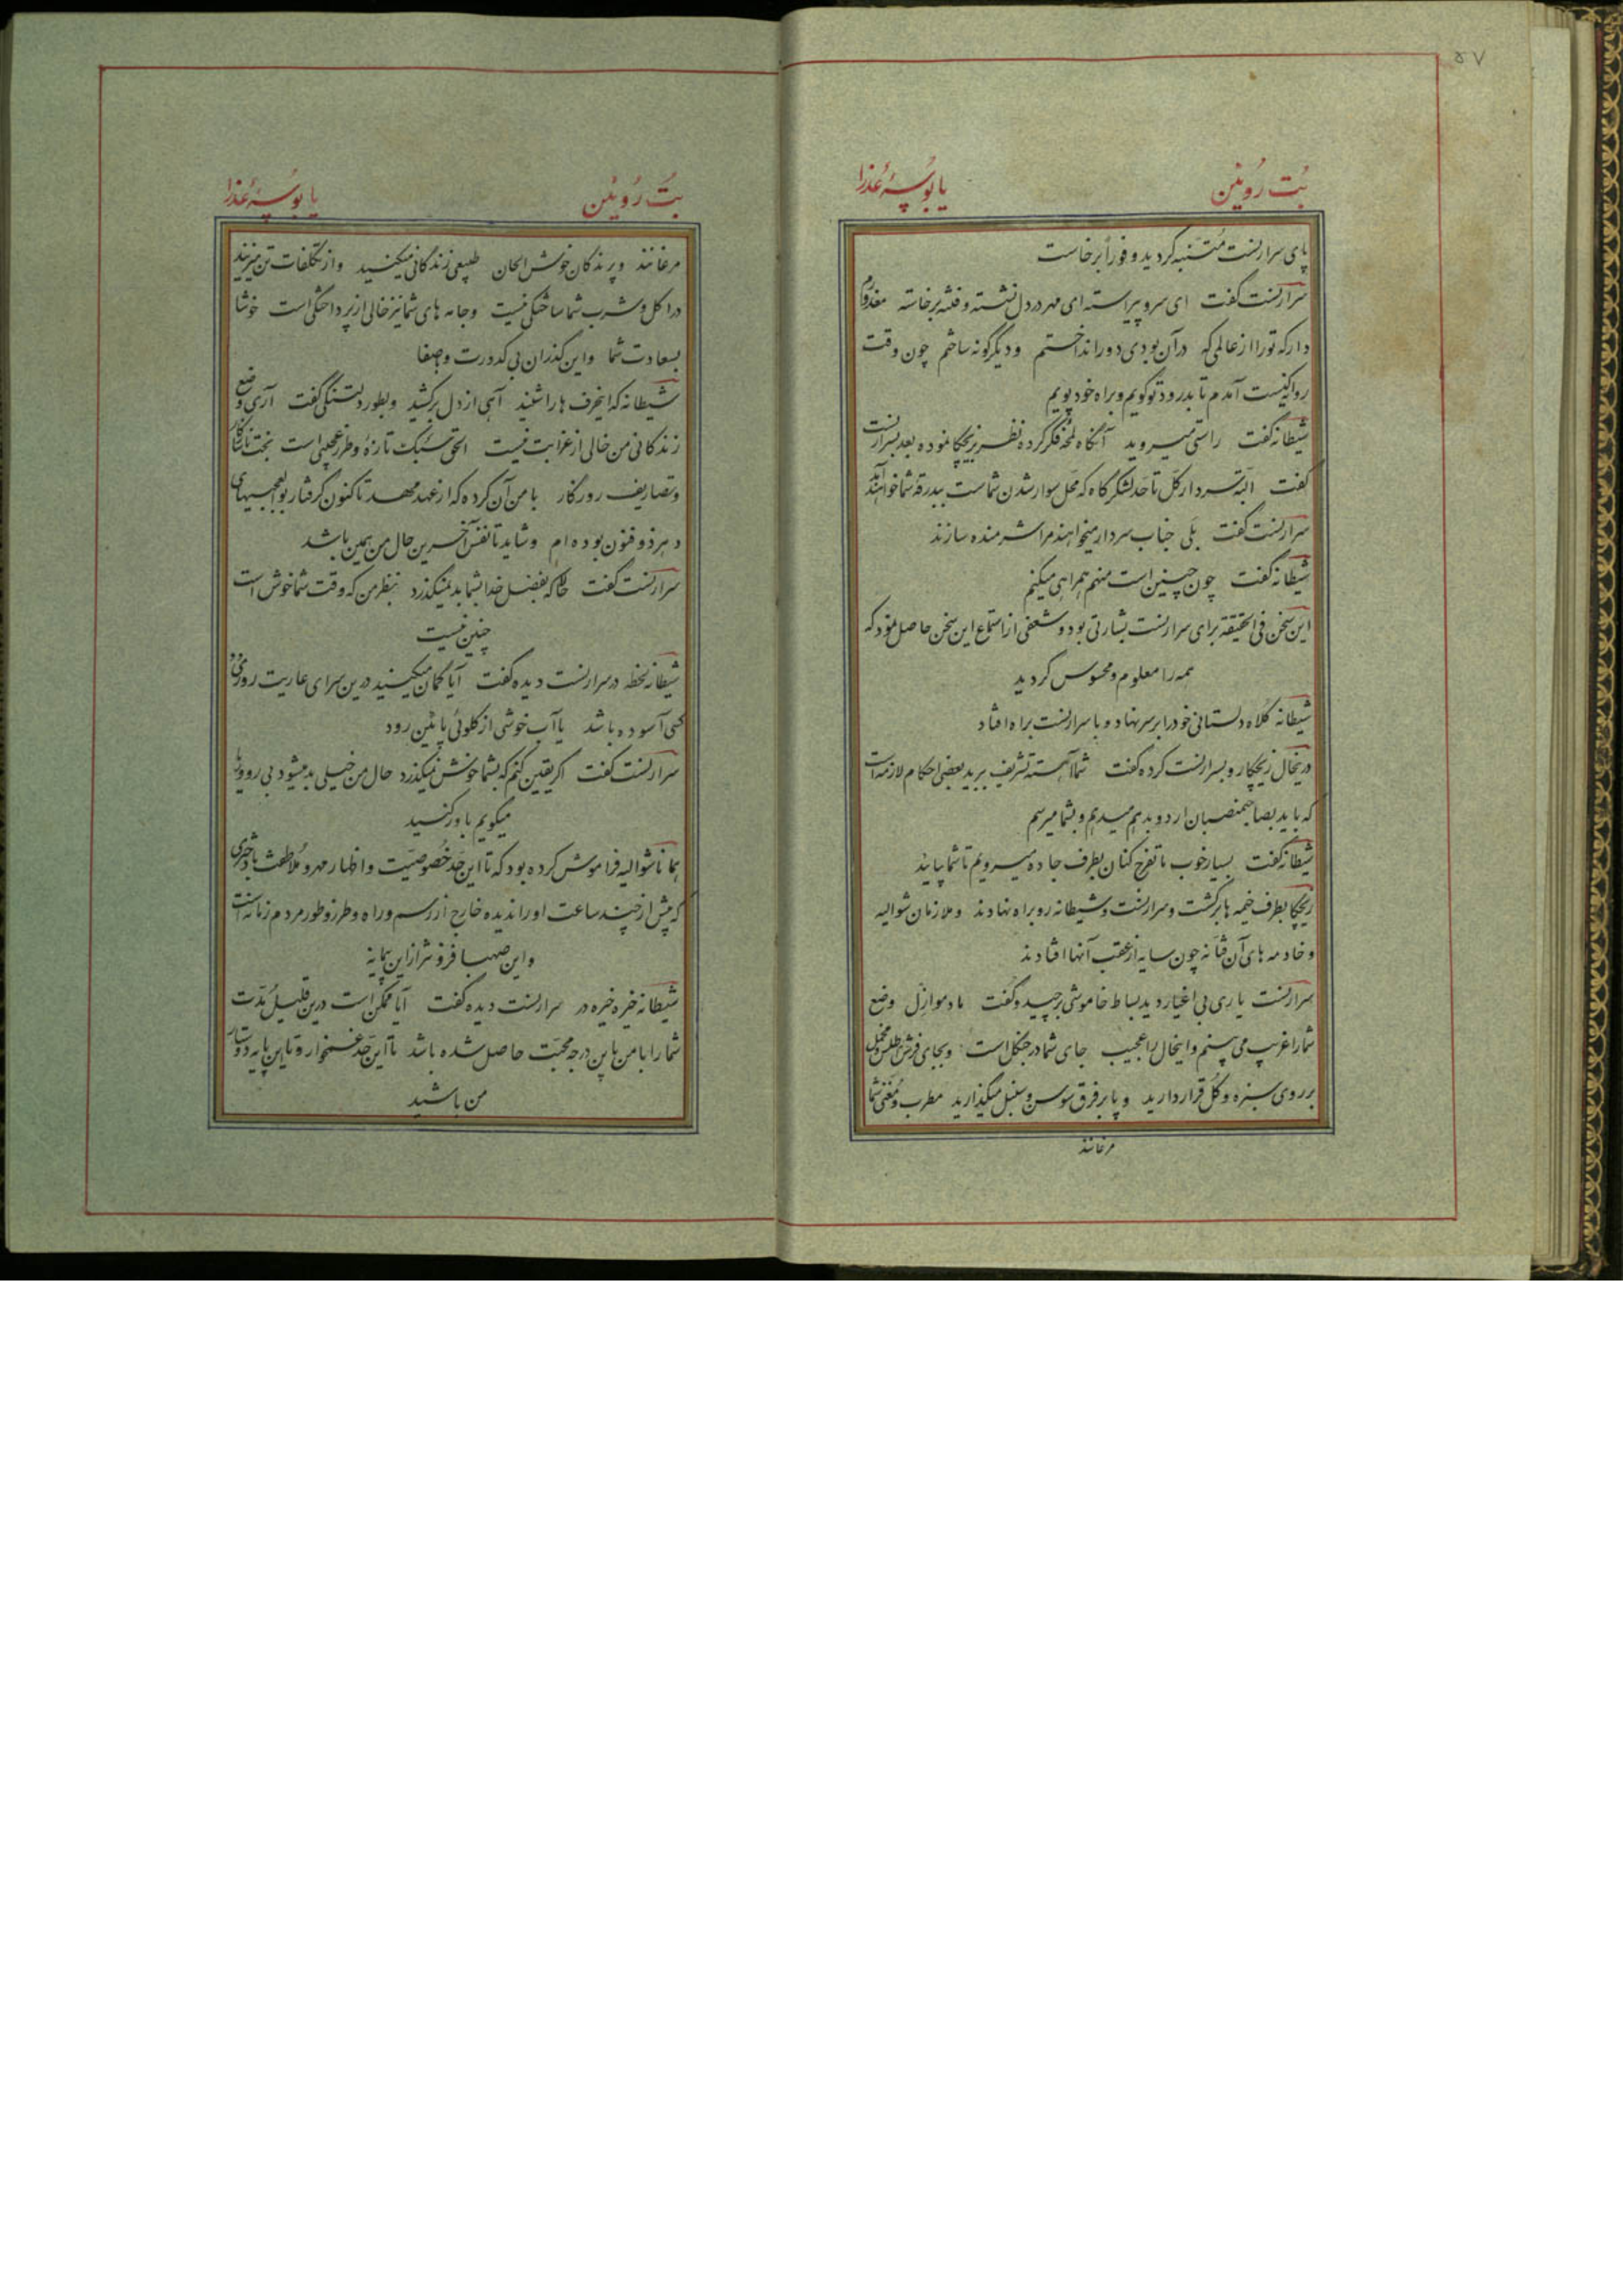 ۵۷
بُت رُوئین یا بُوسِۀ عُذرا
پای سرارنست مُتنبه گردید و فوراً برخاست
سرارنست گفت ای سرو پیراسته ای مهر در دل نشسته و فتنه برخاسته معذورم
دار که تو را از عالمی که در آن بودی دور انداختم و دیگرگونه ساختم چون وقت
روانگیست آمدم تا بدرود تو گویم و براه خود پویم
شیطانه گفت راستی میروید آنگاه لمحۀ فکر کرده نظر بر ریچکا نموده بعد بسرارنست
گفت البته سردار کل تا حد لشکرگاه که محل سوار شدن شماست ببدرقه شما خواهند آمد
سرارنست گفت بلی جناب سردار میخواهند مرا شرمنده سازند
شیطانه گفت چون چنین است منهم همراهی میکنم
این سخن فی الحقیقه برای سرارنست بشارتی بود و شعفی از استماع این سخن حاصل نمود که
همه را معلوم و محسوس گردید
شیطانه کلاه دلستانی خود را بر سر نهاد و با سرارنست براه افتاد
در ینحال ریچکا رو بسرارنست کرده گفت شما آهسته تشریف برید بعضی احکام لازمه است
که باید بصاحبمنصبان اردو بدهم میدهم و بشما میرسم
شیطانه گفت بسیار خوب ما تفرج کنان بطرف جاده میرویم تا شما بیایند
ریچکا بطرف خیمه ها برگشت و سرارنست و شیطانه رو براه نهادند و ملازمان شوالیه
و خادمه های آن فتانه چون سایه از عقب آنها افتادند
سرارنست یاری بی اغیار دید بساط خاموشی برچیده گفت مادموازل وضع
شما را غریب می بینم و اینحال را عجیب جای شما در جنگل است و بجای فرش اطلس و مخمل
بر روی سبزه و گل قرار دارید و پا بر فرق سوسن و سنبل میگذارید مطرب و مُغنی شما
مرغانند
بُت رُوئین یا بُوسِۀ عُذرا
مرغانند و پرندگان خوش الحان طبیعی زندگانی میکنید و از تکلفات تن میزنید
در اکل و شرب شما ساختگی نیست و جامه های شما نیز خالی از پرداختگی است خوشا
بسعادت شما و این گذران بی کدورت و صفا
شیطانه که اینحرف ها را شنید آهی از دل برکشید و بطور دلتنگی گفت آری وضع
زندگانی من خالی از غرابت نیست الحق سبک تازۀ و طرز عجیبی است بخت ناسازگار
و تصاریف روزگار با من آن کرده که از عهد مهد تا کنون گرفتار بوالعجبیهای
دهر ذوفنون بوده ام و شاید تا نفس آخرین حال من همین باشد
سرارنست گفت حالا که بفضل خدا بشما بد نمیگذرد بنظر من که وقت شما خوش است
چنین نیست
شیطانه لحظه در سرارنست دیده گفت آیا گمان میکنید درین سرای عاریت روزی
کسی آسوده باشد یا آب خوشی از گلوئی پائین رود
سرارنست گفت اگر یقین کنم که بشما خوش نمیگذرد حال من خیلی بد میشود بی رو و ریا
میگویم باور کنید
همانا شوالیه فراموش کرده بود که تا این حَد خُصوصیّت و اظهار مهر و مُلاطفت با دختری
که پیش از چند ساعت او را ندیده خارج از رسم و راه و طرز و طور مردم زمانه است
و این صهبا فزونتر از این پیمایه
شیطانه خیره خیره در سرارنست دیده گفت آیا ممکن است درین قلیل مُدّت
شما را با من باین درجه محبّت حاصل شده باشد تا این حَد غمخوار و تا این پایه دوستار
من باشید